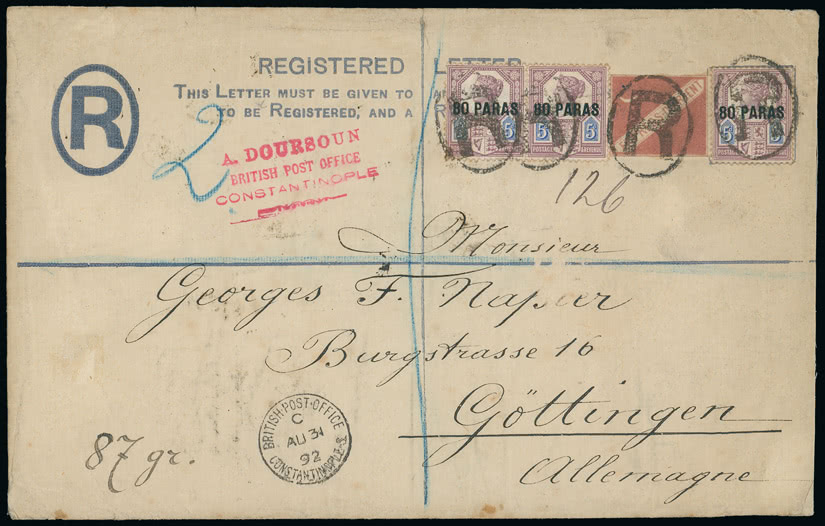 REGISTERED LETTER
THIS LETTER MUST BE GIVEN TO
TO BE REGISTERED, AND A
R
2
A. DOURSOUN
BRITISH POST OFFICE
CONSTANTINOPLE
80 PARAS
5
5
80 PARAS
5
5
R
80 PARAS
5
5
126
Monsieur
Georges F. Napier
Burgstrasse 16
Göttingen
Allemagne
87 gr.
BRITISH·POST·OFFICE
C
AU 31
92
CONSTANTINOPLE